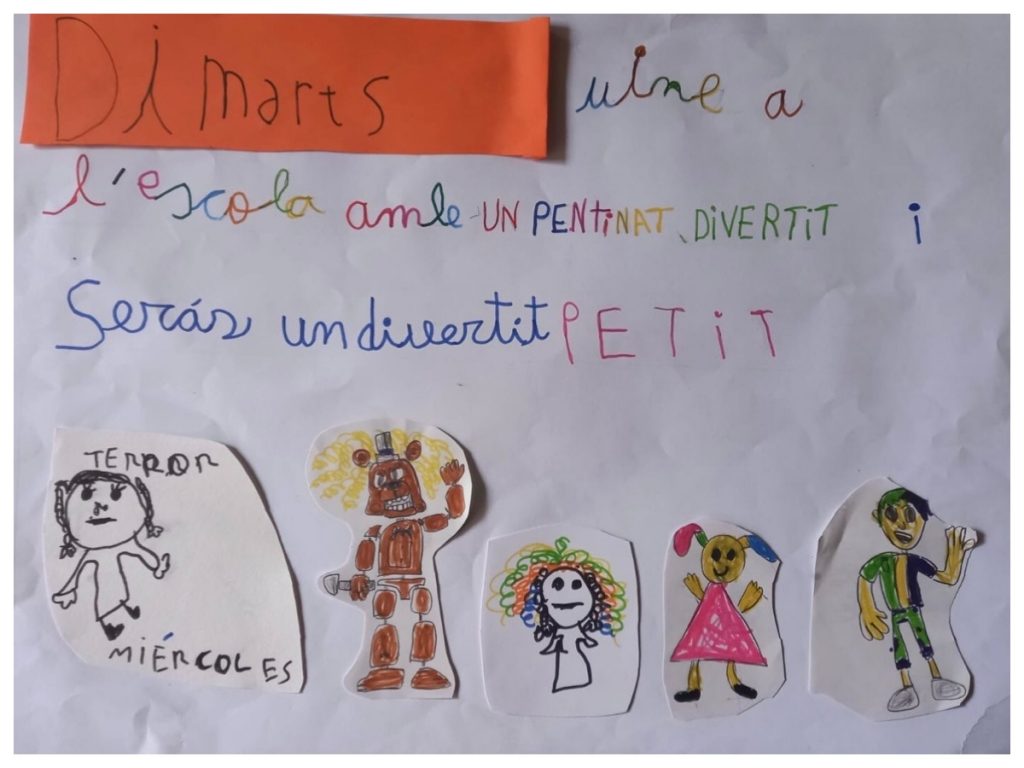 Dimarts vine a
l'escola amb UN PENTiNAT DiVERTiT i
Serás un divertit PETiT
TERROR
MIÉRCOLES